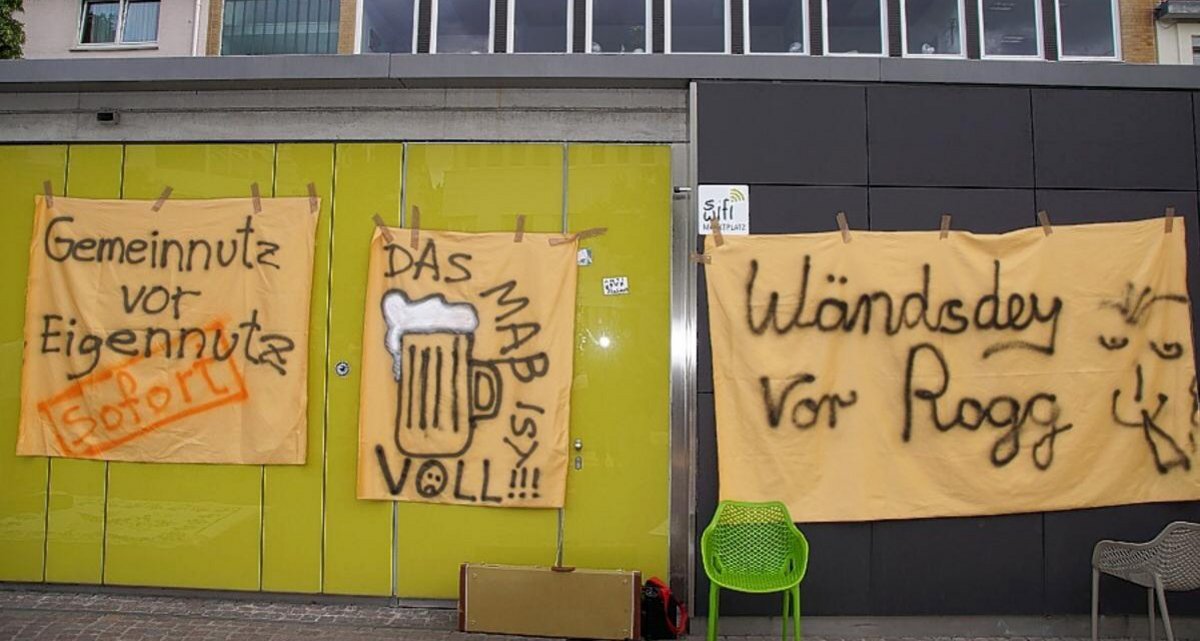 Gemeinnutz
vor
Eigennutz
Sofort
DAS
MAß IST
VOLL!!!
swifi
MARKTPLATZ
Wändsdey
vor Rogg